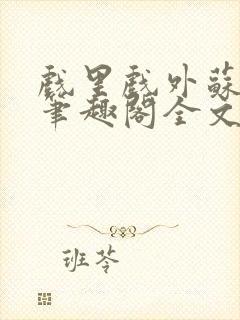 戲里戲外蘇
筆趣閣全文
班苓